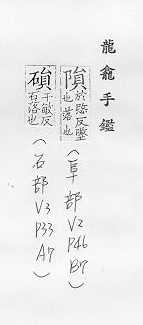 龍龕手鑑
隕 反墜也落也 (阜部 V2 P46 B7)
磒 于敏反石落也 (石部 V3 P33 A7)